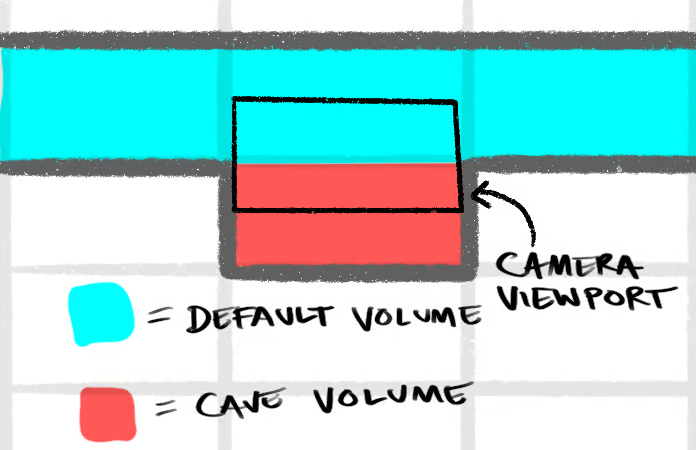 CAMERA
VIEWPORT
= DEFAULT VOLUME
= CAVE VOLUME